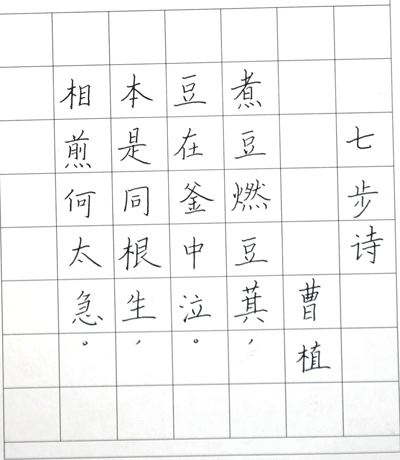 七步诗
曹植
煮豆燃豆萁，
豆在釜中泣。
本是同根生，
相煎何太急。